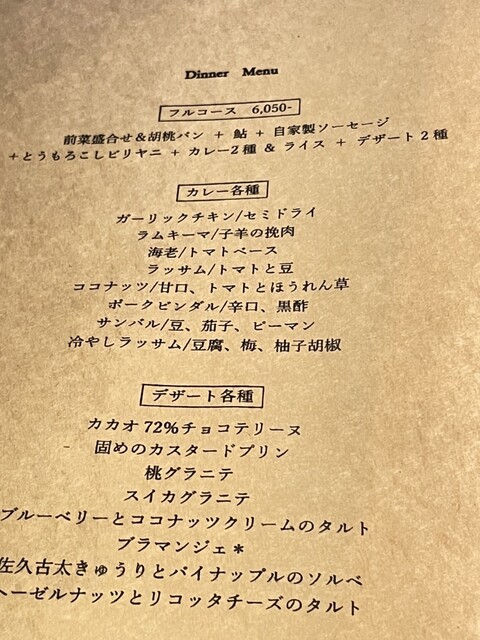 Dinner Menu
フルコース 6,050-
前菜盛合せ＆胡桃パン + 鮎 + 自家製ソーセージ
+とうもろこしビリヤニ + カレー2種 & ライス + デザート2種
カレー各種
ガーリックチキン/セミドライ
ラムキーマ/子羊の挽肉
海老/トマトベース
ラッサム/トマトと豆
ココナッツ/甘口、トマトとほうれん草
ポークビンダル/辛口、黒酢
サンバル/豆、茄子、ピーマン
冷やしラッサム/豆腐、梅、柚子胡椒
デザート各種
カカオ72%チョコテリーヌ
固めのカスタードプリン
桃グラニテ
スイカグラニテ
ブルーベリーとココナッツクリームのタルト
ブラマンジェ＊
佐久古太きゅうりとパイナップルのソルベ
ヘーゼルナッツとリコッタチーズのタルト